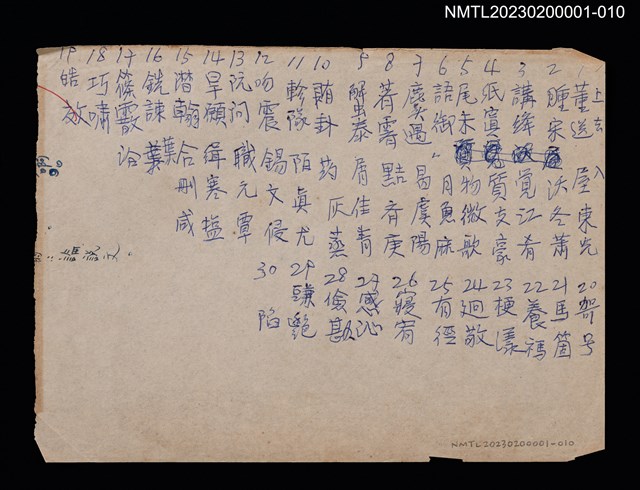 NMTL20230200001-010
上 去 入
1 董 送 屋 東 先 20 哿 号
2 腫 宋 沃 冬 蕭 21 馬 箇
3 講 絳 覚 江 肴 22 養 禡
4 紙 寘 質 支 豪 23 梗 漾
5 尾 未 物 微 歌 24 廻 敬
6 語 御 月 魚 麻 25 有 徑
7 麌 遇 曷 虞 陽 26 寢 宥
8 荠 霽 黠 斉 庚
9 蟹 泰 屑 佳 青 27 感 沁
10 賄 卦 药 灰 蒸 28 儉 勘
11 軫 隊 陌 真 尤 29 豏 艷
12 吻 震 錫 文 侵 30 陷
13 阮 问 職 元 覃
14 旱 願 緝 寒 塩
15 潸 翰 合 刪 咸
16 銑 諫 葉
17 篠 霰 洽
18 巧 嘯
19 皓 效
NMTL20230200001-010